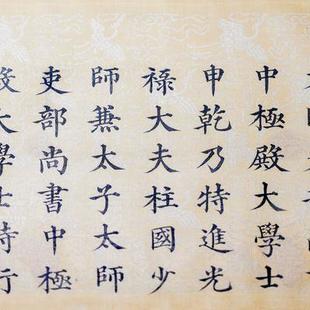 中極殿大學士
申乾乃特進光
祿大夫柱國少
師兼太子太師
吏部尚書中極
殿大學士時行